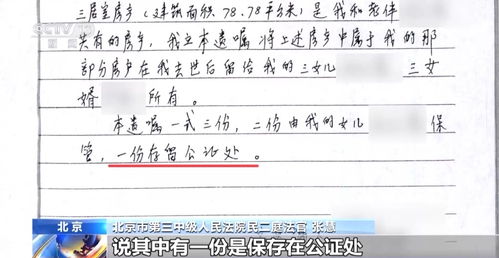 CCTV 13
新闻
三居室房产（建筑面积78.78平方米）是我和老伴
共有的房产，我立本遗嘱将上述房产中属于我的那
部分房产在我去世后留给我的三女儿 三女
婿 所有。
本遗嘱一式三份，二份由我的女儿 保
管，一份存留公证处。
北京 北京市第三中级人民法院民二庭法官 张慧
说其中有一份是保存在公证处